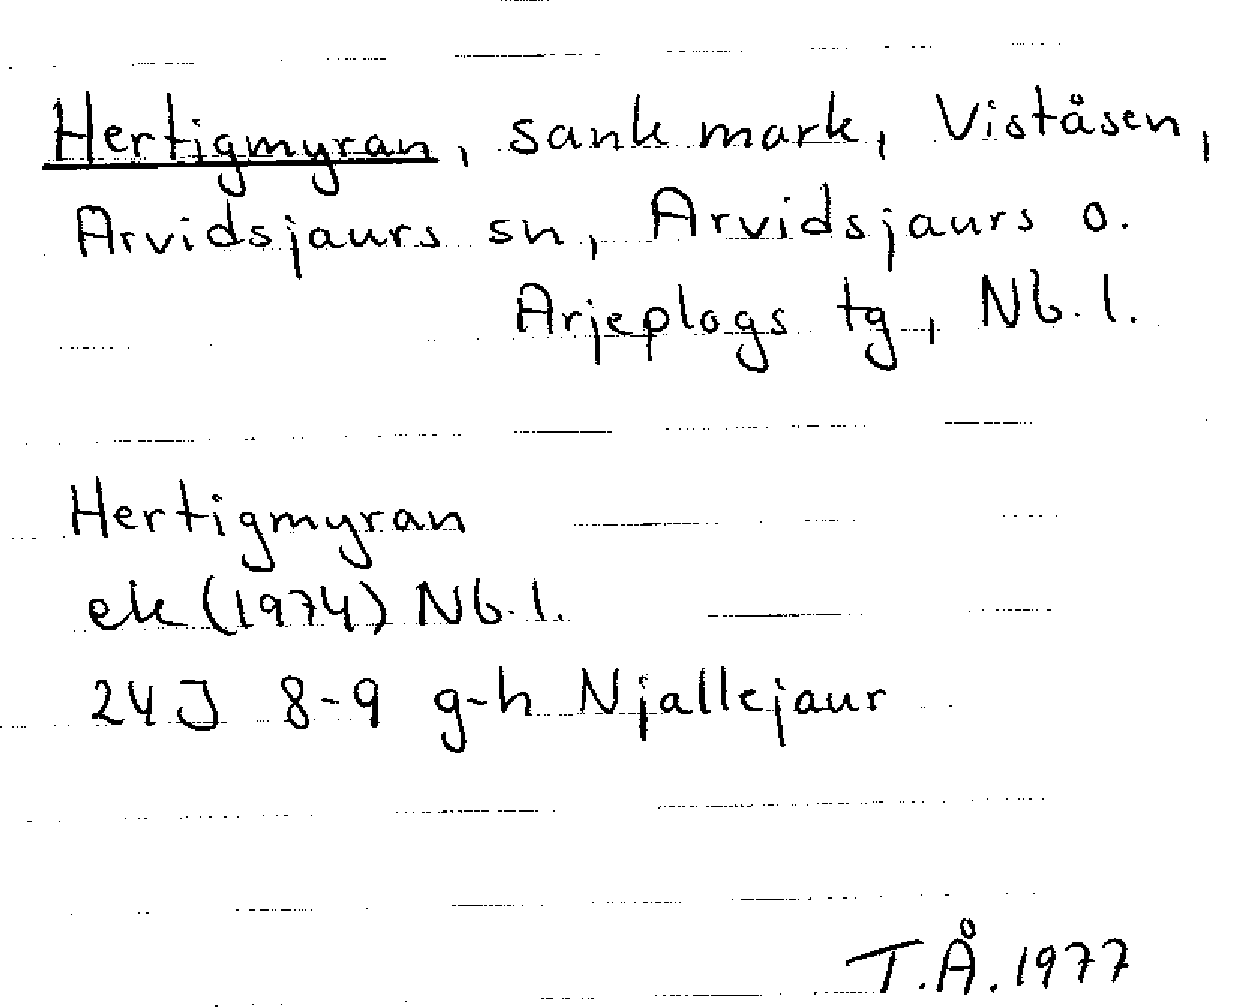 Hertigmyran, sank mark, Viståsen,
Arvidsjaurs sn, Arvidsjaurs o.
Arjeplogs tg, Nb. l.
Hertigmyran
ek (1974) Nb. l.
24J 8-9 g-h Njallejaur
T.Å. 1977